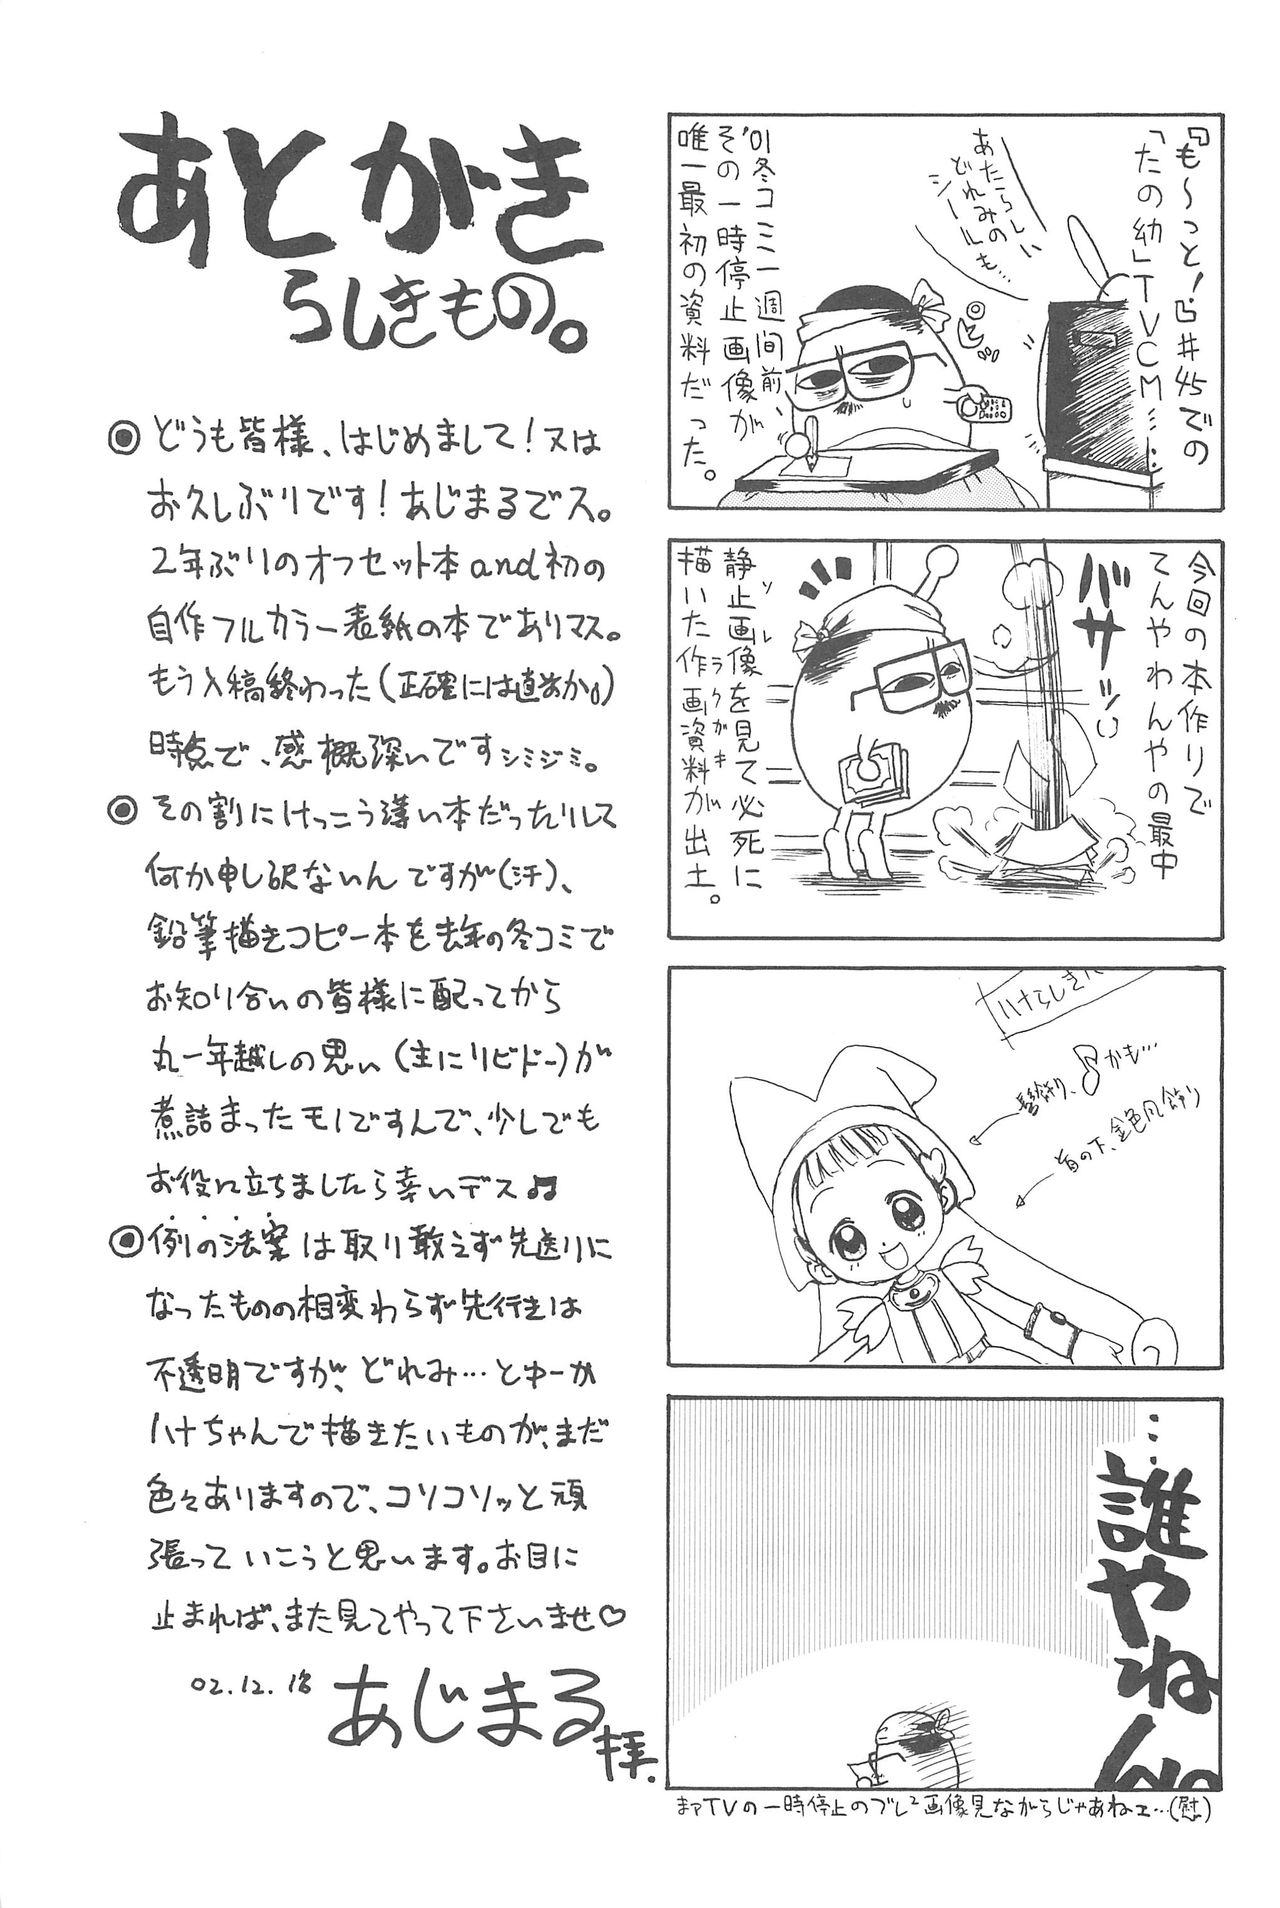 あとがき
らしきもの。
◉どうも皆様、はじめまして！又は
お久しぶりです！あじまるでス。
2年ぶりのオフセット本and初の
自作フルカラー表紙の本でありマス。
もう入稿終わった（正確には直前か。）
時点で、感慨深いですシミジミ。
◉その割にけっこう薄い本だったりして
何か申し訳ないんですが（汗）、
鉛筆描きコピー本を去年の冬コミで
お知り合いの皆様に配ってから
丸一年越しの思い（主にリビドー）が
煮詰まったモノですんで、少しでも
お役に立ちましたら幸いデス♬
◉例の法案は取り敢えず先送りに
なったものの相変わらず先行きは
不透明ですが、どれみ…とゆーか
ハナちゃんで描きたいものが、まだ
色々ありますので、コソコソッと頑
張っていこうと思います。お目に
止まれば、また見てやって下さいませ♡
02.12.18
あじまる
拝.
『も〜っと！』#45での
「たの幼」TVCM……
あたらしい
どれみの
シールも…
ピッ
'01冬コミ一週間前、
その一時停止画像が
唯一最初の資料だった。
今回の本作りで
てんやわんやの最中
バサッ
静止画像を見て必死に
描いた作画資料が出土。
ラクガキ
ハナらしき
髪飾り、♪かも…
首の下、金色凡飾り
…誰やねん。
まァTVの一時停止のブレ²画像見ながらじゃあねェ…(慰)